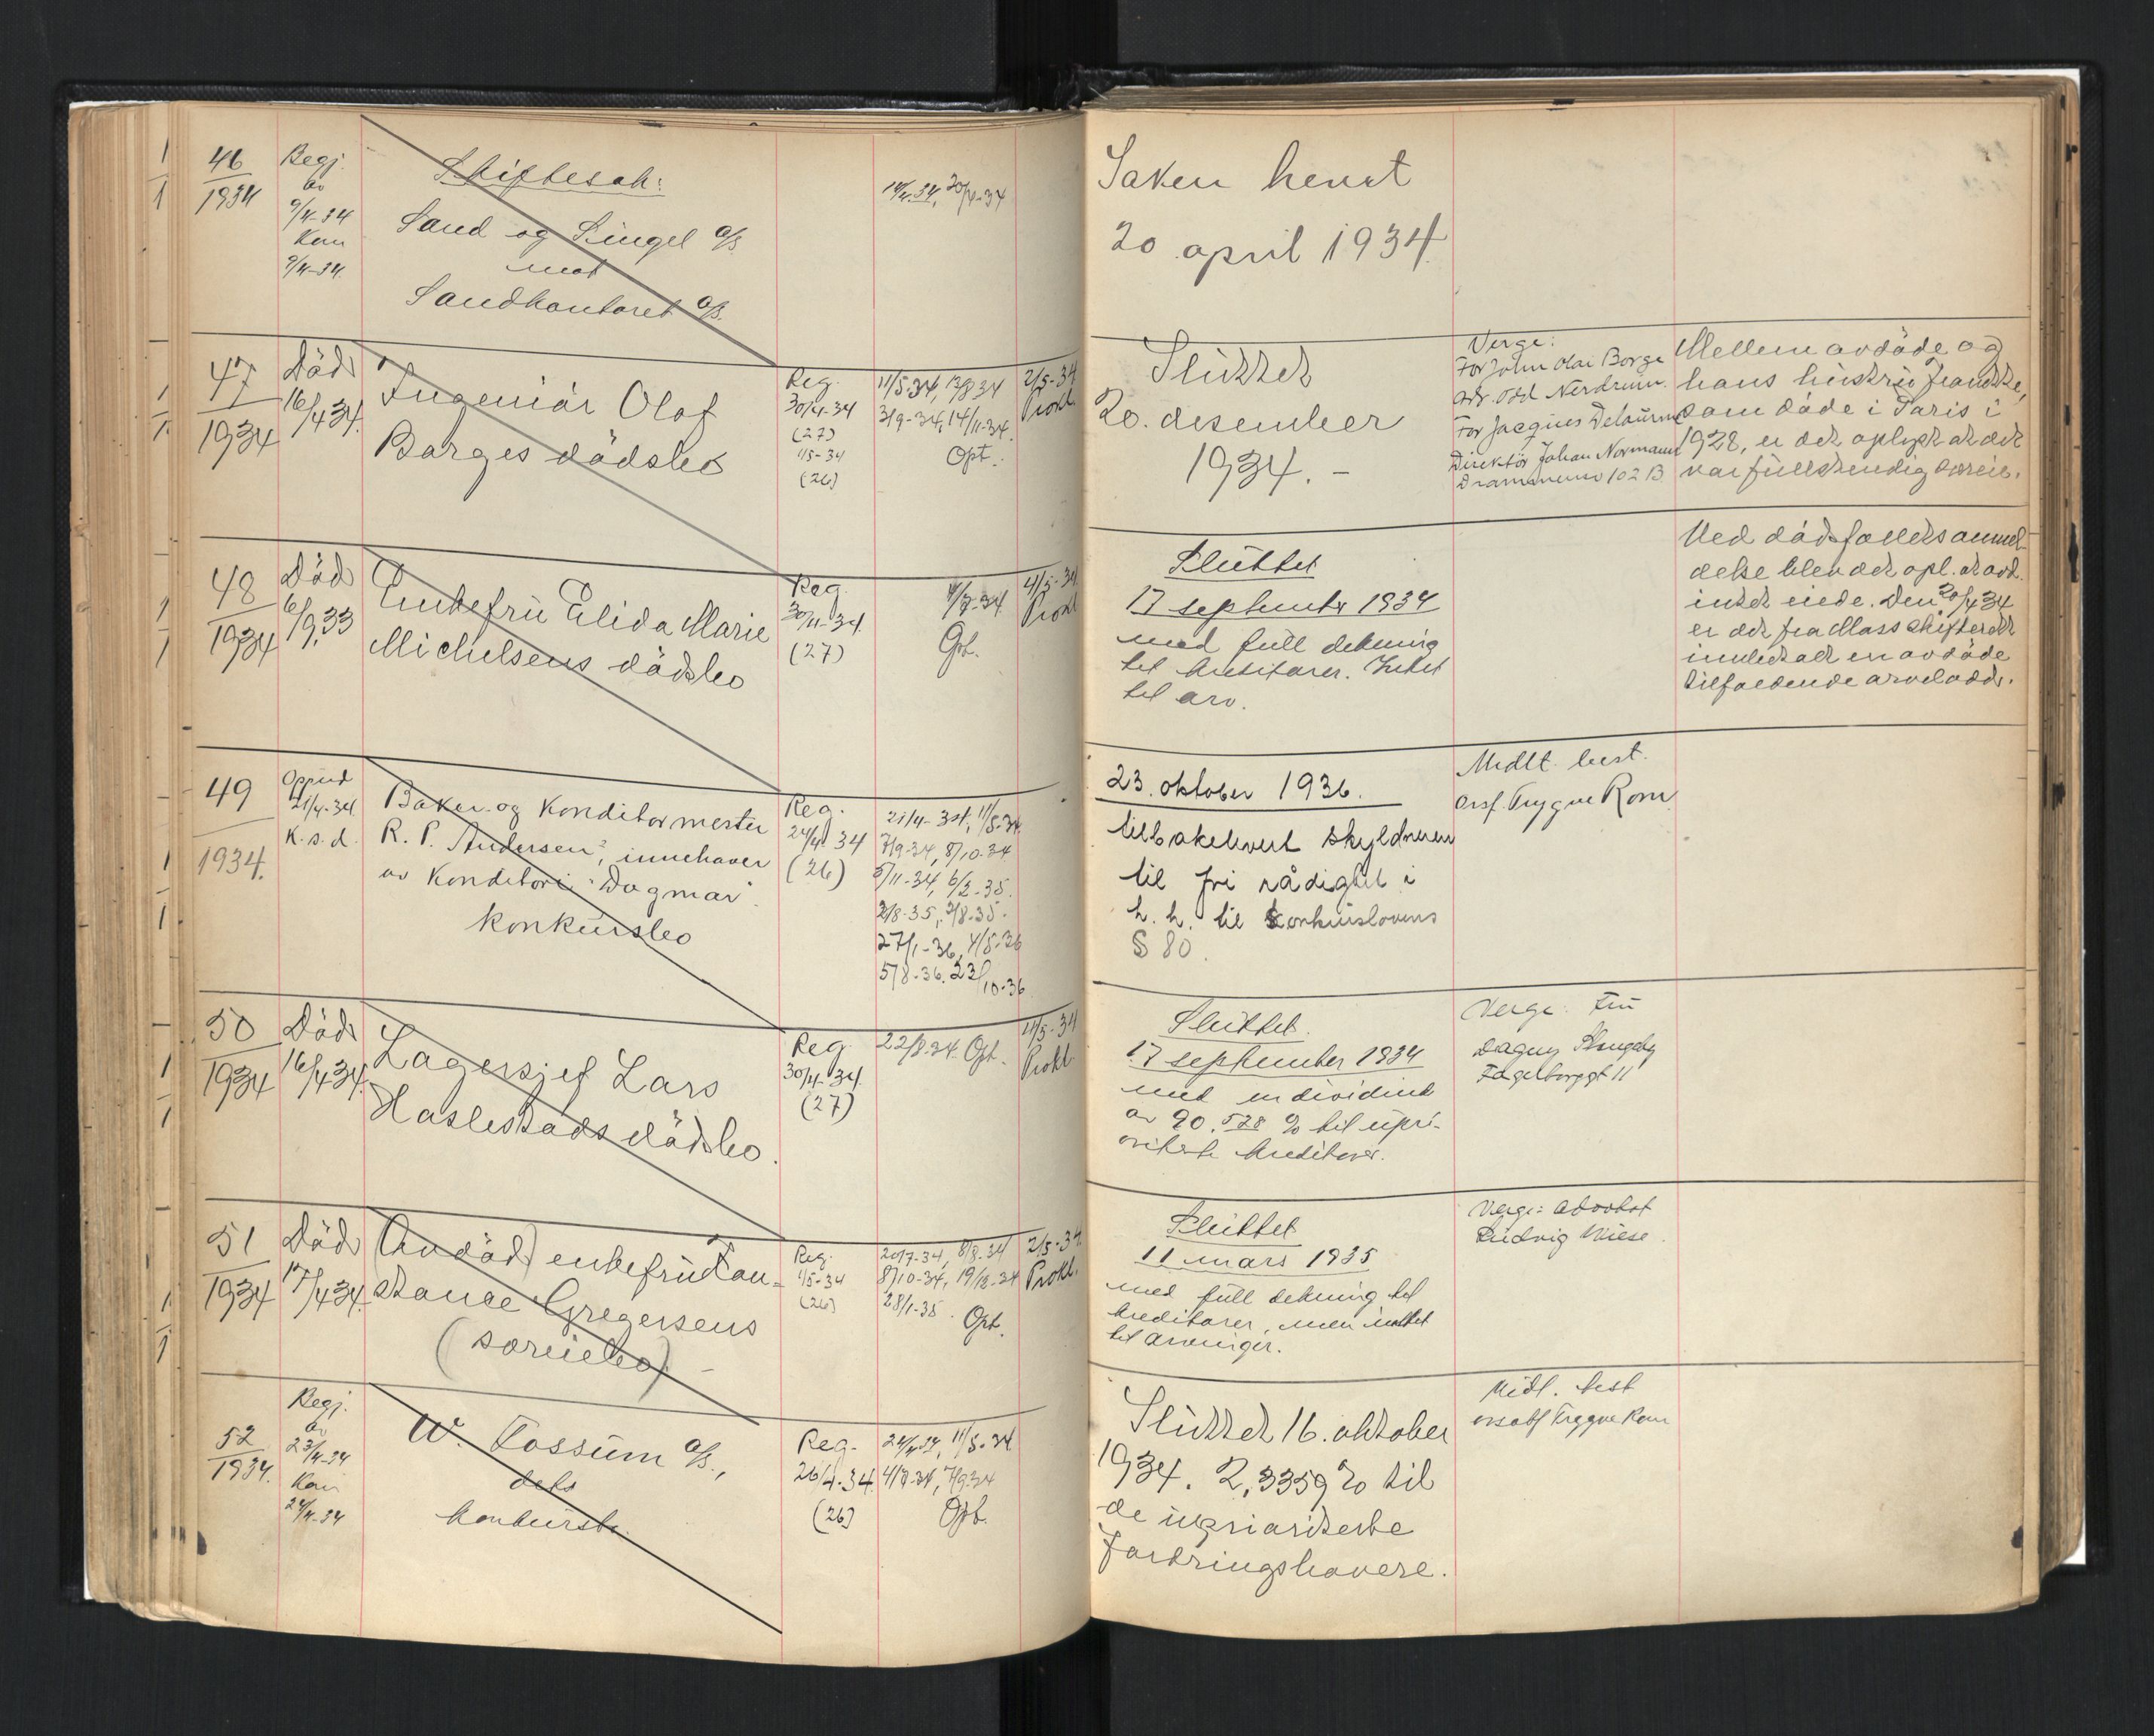 46
1934
Begj.
av
9/4-34
Kon
9/4-34.
Skiftesak:
Sand og Singel A/S
mot
Sandkontoret A/S.
14/4.34, 20/4-34
Saken hevet
20 april 1934.
47
1934
Död
16/4 34.
Ingeniör Olaf
Borges dödsbo
Reg.
30/4-34
(27)
1/5-34
(26)
11/5-34, 13/8 34
3/9-34, 14/11-34.
Opt.
2/5-34
Prokl.
Sluttet
20. desember
1934. -
Verge:
For John Olai Borge
adv. Odd Nerdrum.
For Jacques Delaurme
Direktör Johan Normann
Drammensv 102 B.
Mellem avdöde og
hans hustru Franciske,
som döde i Paris i
1928, er det oplyst at det
var fullstendig særeie.
48
1934
Död
6/9.33
Enkefru Elida Marie
Michelsens dödsbo
Reg.
30/4-34.
(27)
4/7-34.
Opt.
4/5-34.
Prokl
Sluttet
17 september 1934
med full dekning
til kreditorer. Intet
til arv.
Ved dödsfallets anmel-
delse blev det opl. at avd.
intet eiede. Den 20/4 34
er det fra Moss skifterett
innbetalt en avdöde
tilfaldende arvelodd.
49
1934.
Oppud
21/4-34
K.s.d.
Baker- og Konditormester
R. P. Andersen, innehaver
av Konditori "Dagmar".
konkursbo
Reg.
24/4 34
(26)
21/4-34, 11/5-34.
7/9-34, 8/10-34
5/11-34, 6/2-35.
2/8-35, 3/8-35.
27/1-36, 4/5-36
5/8-36. 23/10-36
23. oktober 1936.
tilbakelevert skyldneren
til fri rådighet i
h. h. til konkurslovens
§ 80.
Midlt. best.
orsf. Trygve Rom
50
1934
Död
16/4 34.
Lagersjef Lars
Haslestads dödsbo.
Reg.
30/4-34.
(27)
22/8-34. Opt.
11/5-34
Prokl.
Sluttet.
17 september 1934
med en dividende
av 90.528 % til upri-
oriterte kreditorer.
Verge: Fru
Dagny
Fagerborggt 11
51
1934
Död
17/4 34.
(Avdöd) enkefru Kon-
stance Gregersens
(særeiebo). -
Reg.
1/5-34
(26)
20/7-34, 8/8-34
8/10-34, 19/12-34
28/1-35. Opt.
2/5-34.
Prokl.
Sluttet
11 mars 1935
med full dekning til
kreditorer, men intet
til arvinger.
Verge: Advokat
Ludvig Wiese.
52
1934.
Begj.
av
23/4-34
Kon
24/4-34
W. Fossum A/S.,
dets
konkursbo.
Reg.
26/4-34.
(26)
24/4 34, 11/5-34
4/7-34, 7/9 34
Opt.
Sluttet 16. oktober
1934. 2,3359 % til
de uprioriterte
fordringshavere.
Midl. best
orsakf Trygve Rom